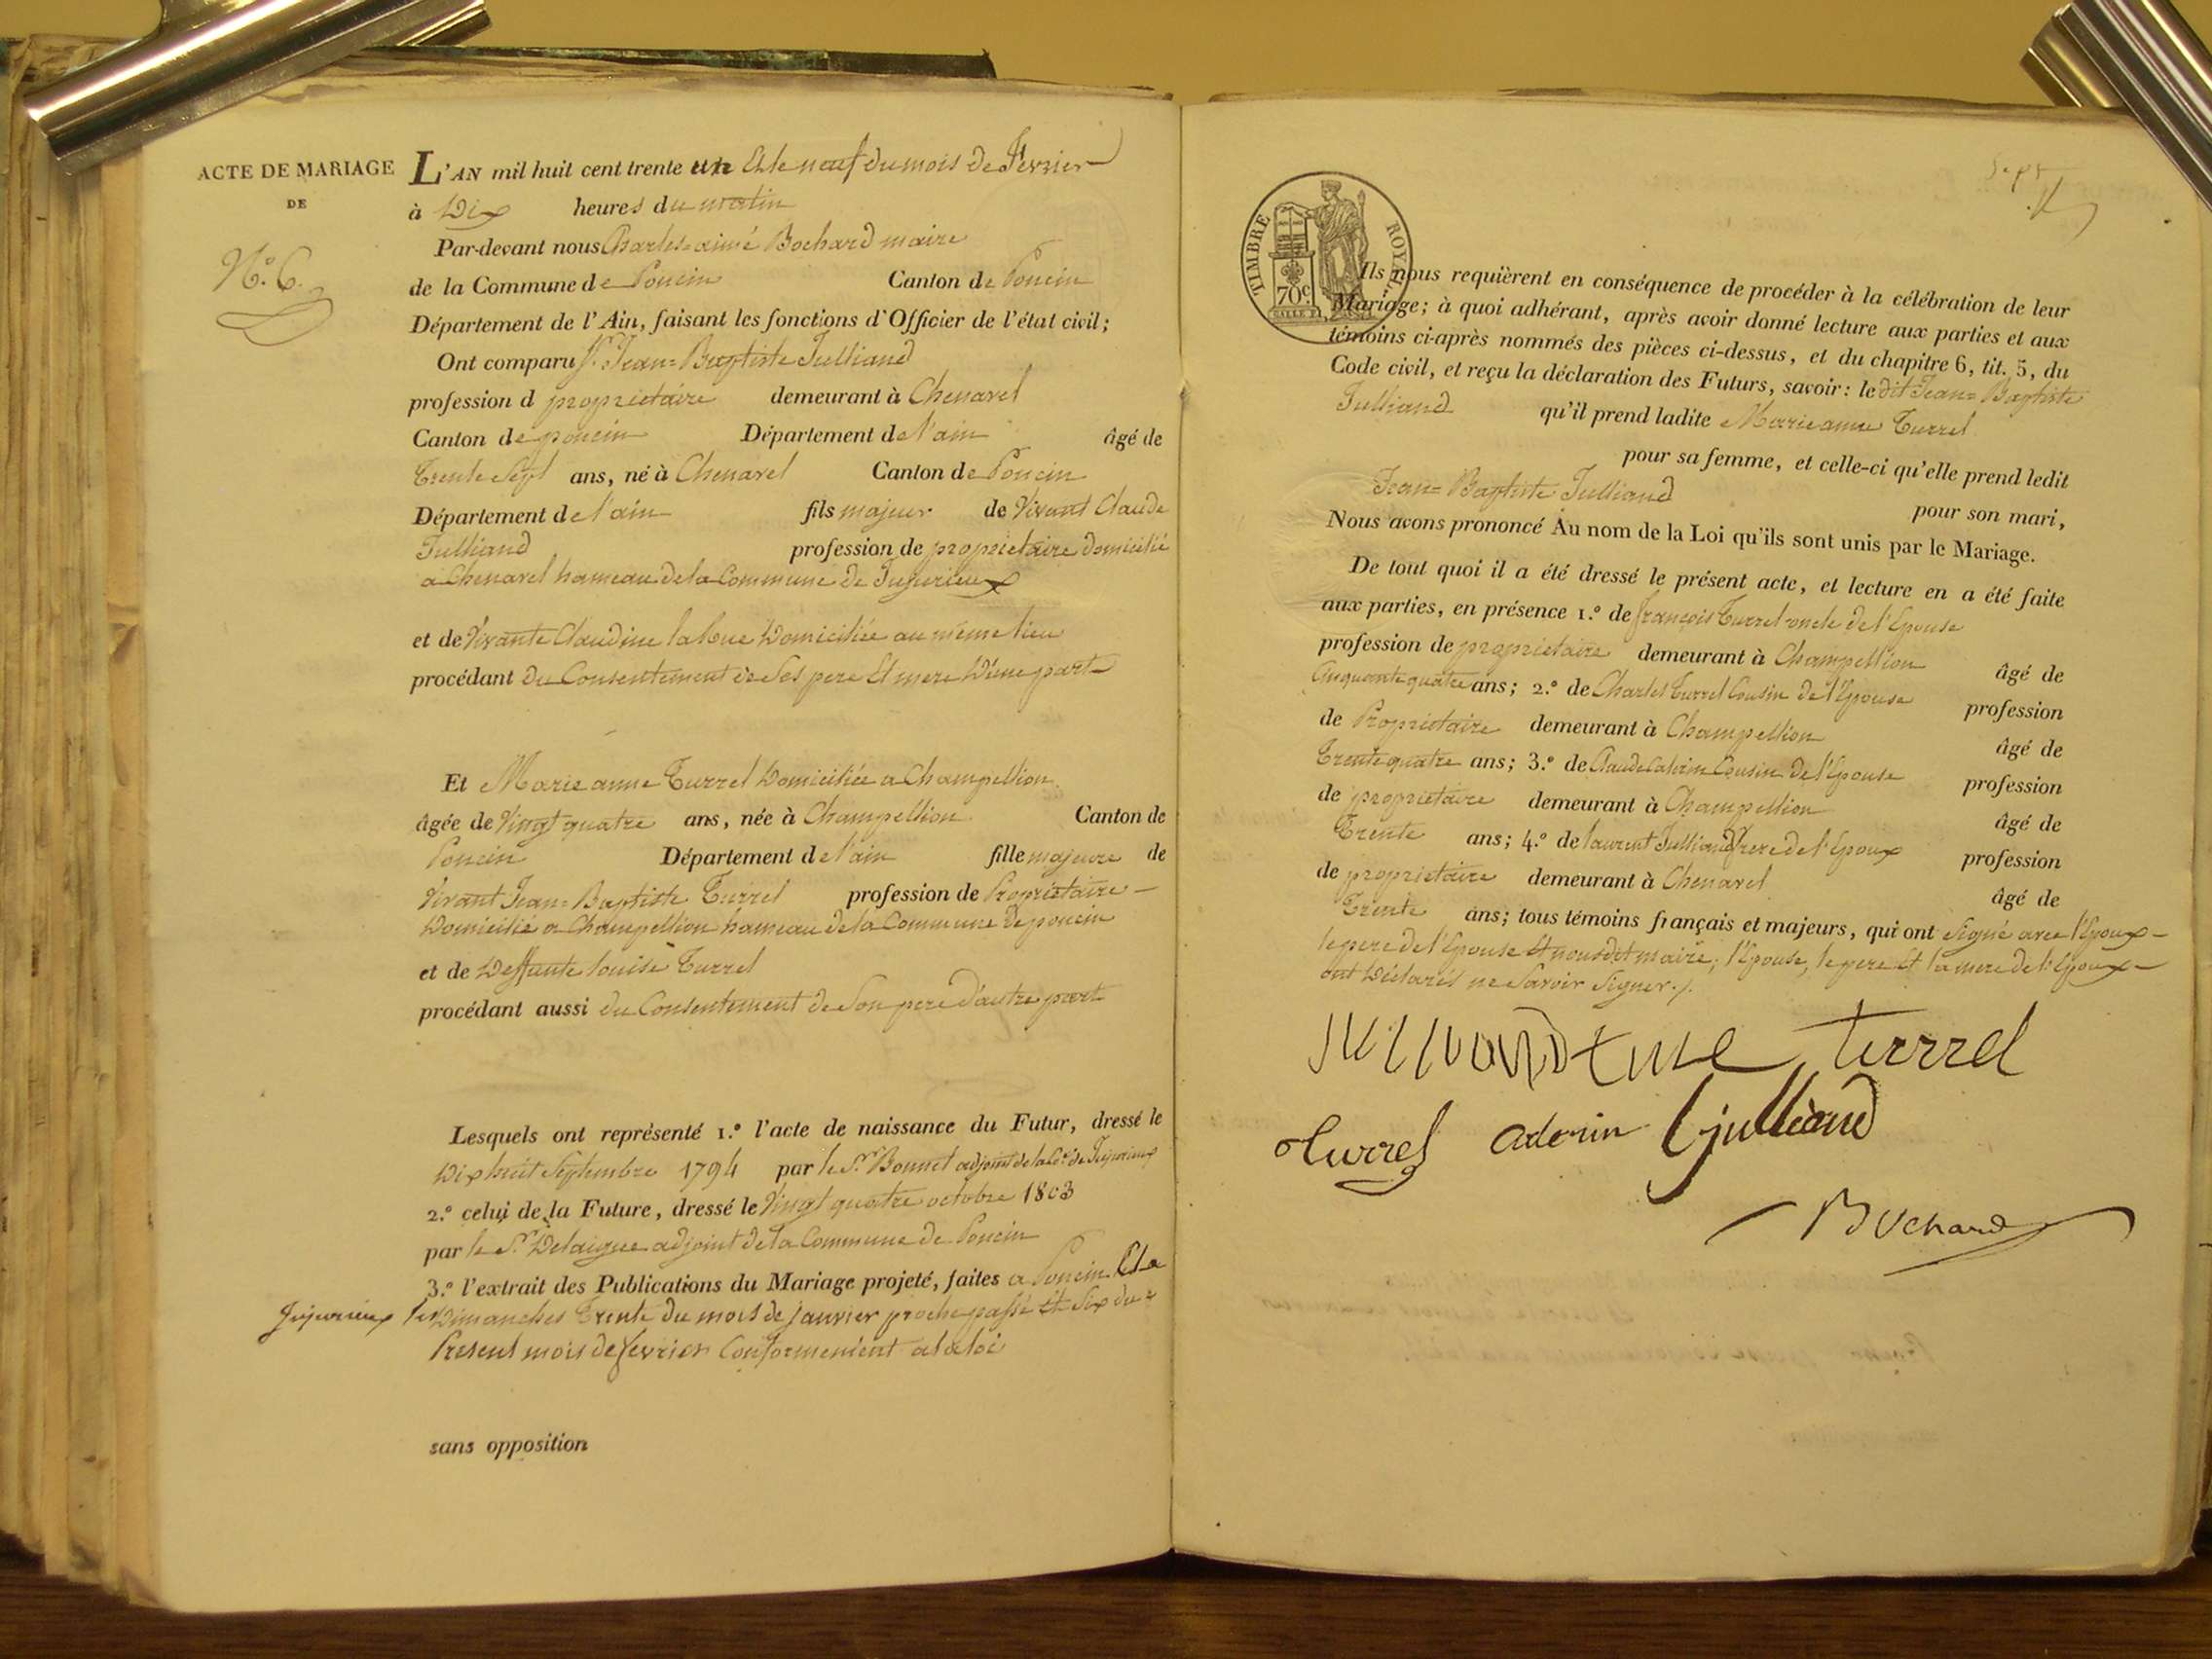 ACTE DE MARIAGE
DE
N.º 6.
L'AN mil huit cent trente un Et le neuf du mois de Fevrier
à Dix heures du matin
Par-devant nous Charles=aimé Bochard maire
de la Commune de Poncin Canton de Poncin
Département de l'Ain, faisant les fonctions d'Officier de l'état civil;
Ont comparu S.r Jean=Baptiste Julliand
profession d propriétaire demeurant à Chenavel
Canton de poncin Département de l'ain âgé de
Trente Sept ans, né à Chenavel Canton de Poncin
Département de l'ain fils majeur de Vivant Claude
Julliand profession de propriétaire domicilié
a Chenavel hameau de la Commune de Jujurieux
et de Vivante Claudine Domiciliée au même lieu
procédant du Consentement de Ses pere Et mere D'une part
Et Marie anne Turrel Domiciliée a Champellion
âgée de Vingt quatre ans, née à Champellion Canton de
Poncin Département de l'ain fille majeure de
Vivant Jean=Baptiste Turrel profession de Propriétaire
Domicilié a Champellion hameau de la Commune de poncin
et de Deffunte louise Turrel
procédant aussi du Consentement de Son pere d'autre part
Lesquels ont représenté 1.º l'acte de naissance du Futur, dressé le
Dix huit Septembre 1794 par le S.r Bonnet adjoint de la C.e de Jujurieux
2.º celui de la Future, dressé le Vingt quatre octobre 1803
par le S.r Delaigue adjoint de la Commune de Poncin
3.º l'extrait des Publications du Mariage projeté, faites a Poncin Et a
Jujurieux les Dimanches Trente du mois de janvier proche passé Et Six du
Present mois de fevrier Conformement a la loi
sans opposition
Sept
TIMBRE ROYAL
70c
Ils nous requièrent en conséquence de procéder à la célébration de leur
Mariage; à quoi adhérant, après avoir donné lecture aux parties et aux
témoins ci-après nommés des pièces ci-dessus, et du chapitre 6, tit. 5, du
Code civil, et reçu la déclaration des Futurs, savoir: le dit Jean=Baptiste
Julliand qu'il prend ladite Marie anne Turrel
pour sa femme, et celle-ci qu'elle prend ledit
Jean=Baptiste Julliand pour son mari,
Nous avons prononcé Au nom de la Loi qu'ils sont unis par le Mariage.
De tout quoi il a été dressé le présent acte, et lecture en a été faite
aux parties, en présence 1.º de françois Turrel oncle de l'Epouse
profession de propriétaire demeurant à Champellion âgé de
Cinquante quatre ans; 2.º de Charles Turrel Cousin de l'Epouse profession
de Propriétaire demeurant à Champellion âgé de
Trente quatre ans; 3.º de Claude Cousin de l'Epouse profession
de propriétaire demeurant à Champellion âgé de
Trente ans; 4.º de laurent Julliand frere de l'Epoux profession
de propriétaire demeurant à Chenavel âgé de
Trente ans; tous témoins français et majeurs, qui ont Signé avec l'Epoux
le pere de l'Epouse Et nousdit maire; l'Epouse, le pere Et la mere de l'Epoux
ont Déclarés ne Savoir Signer./.
turrel
Turrel Julliand
Bochard